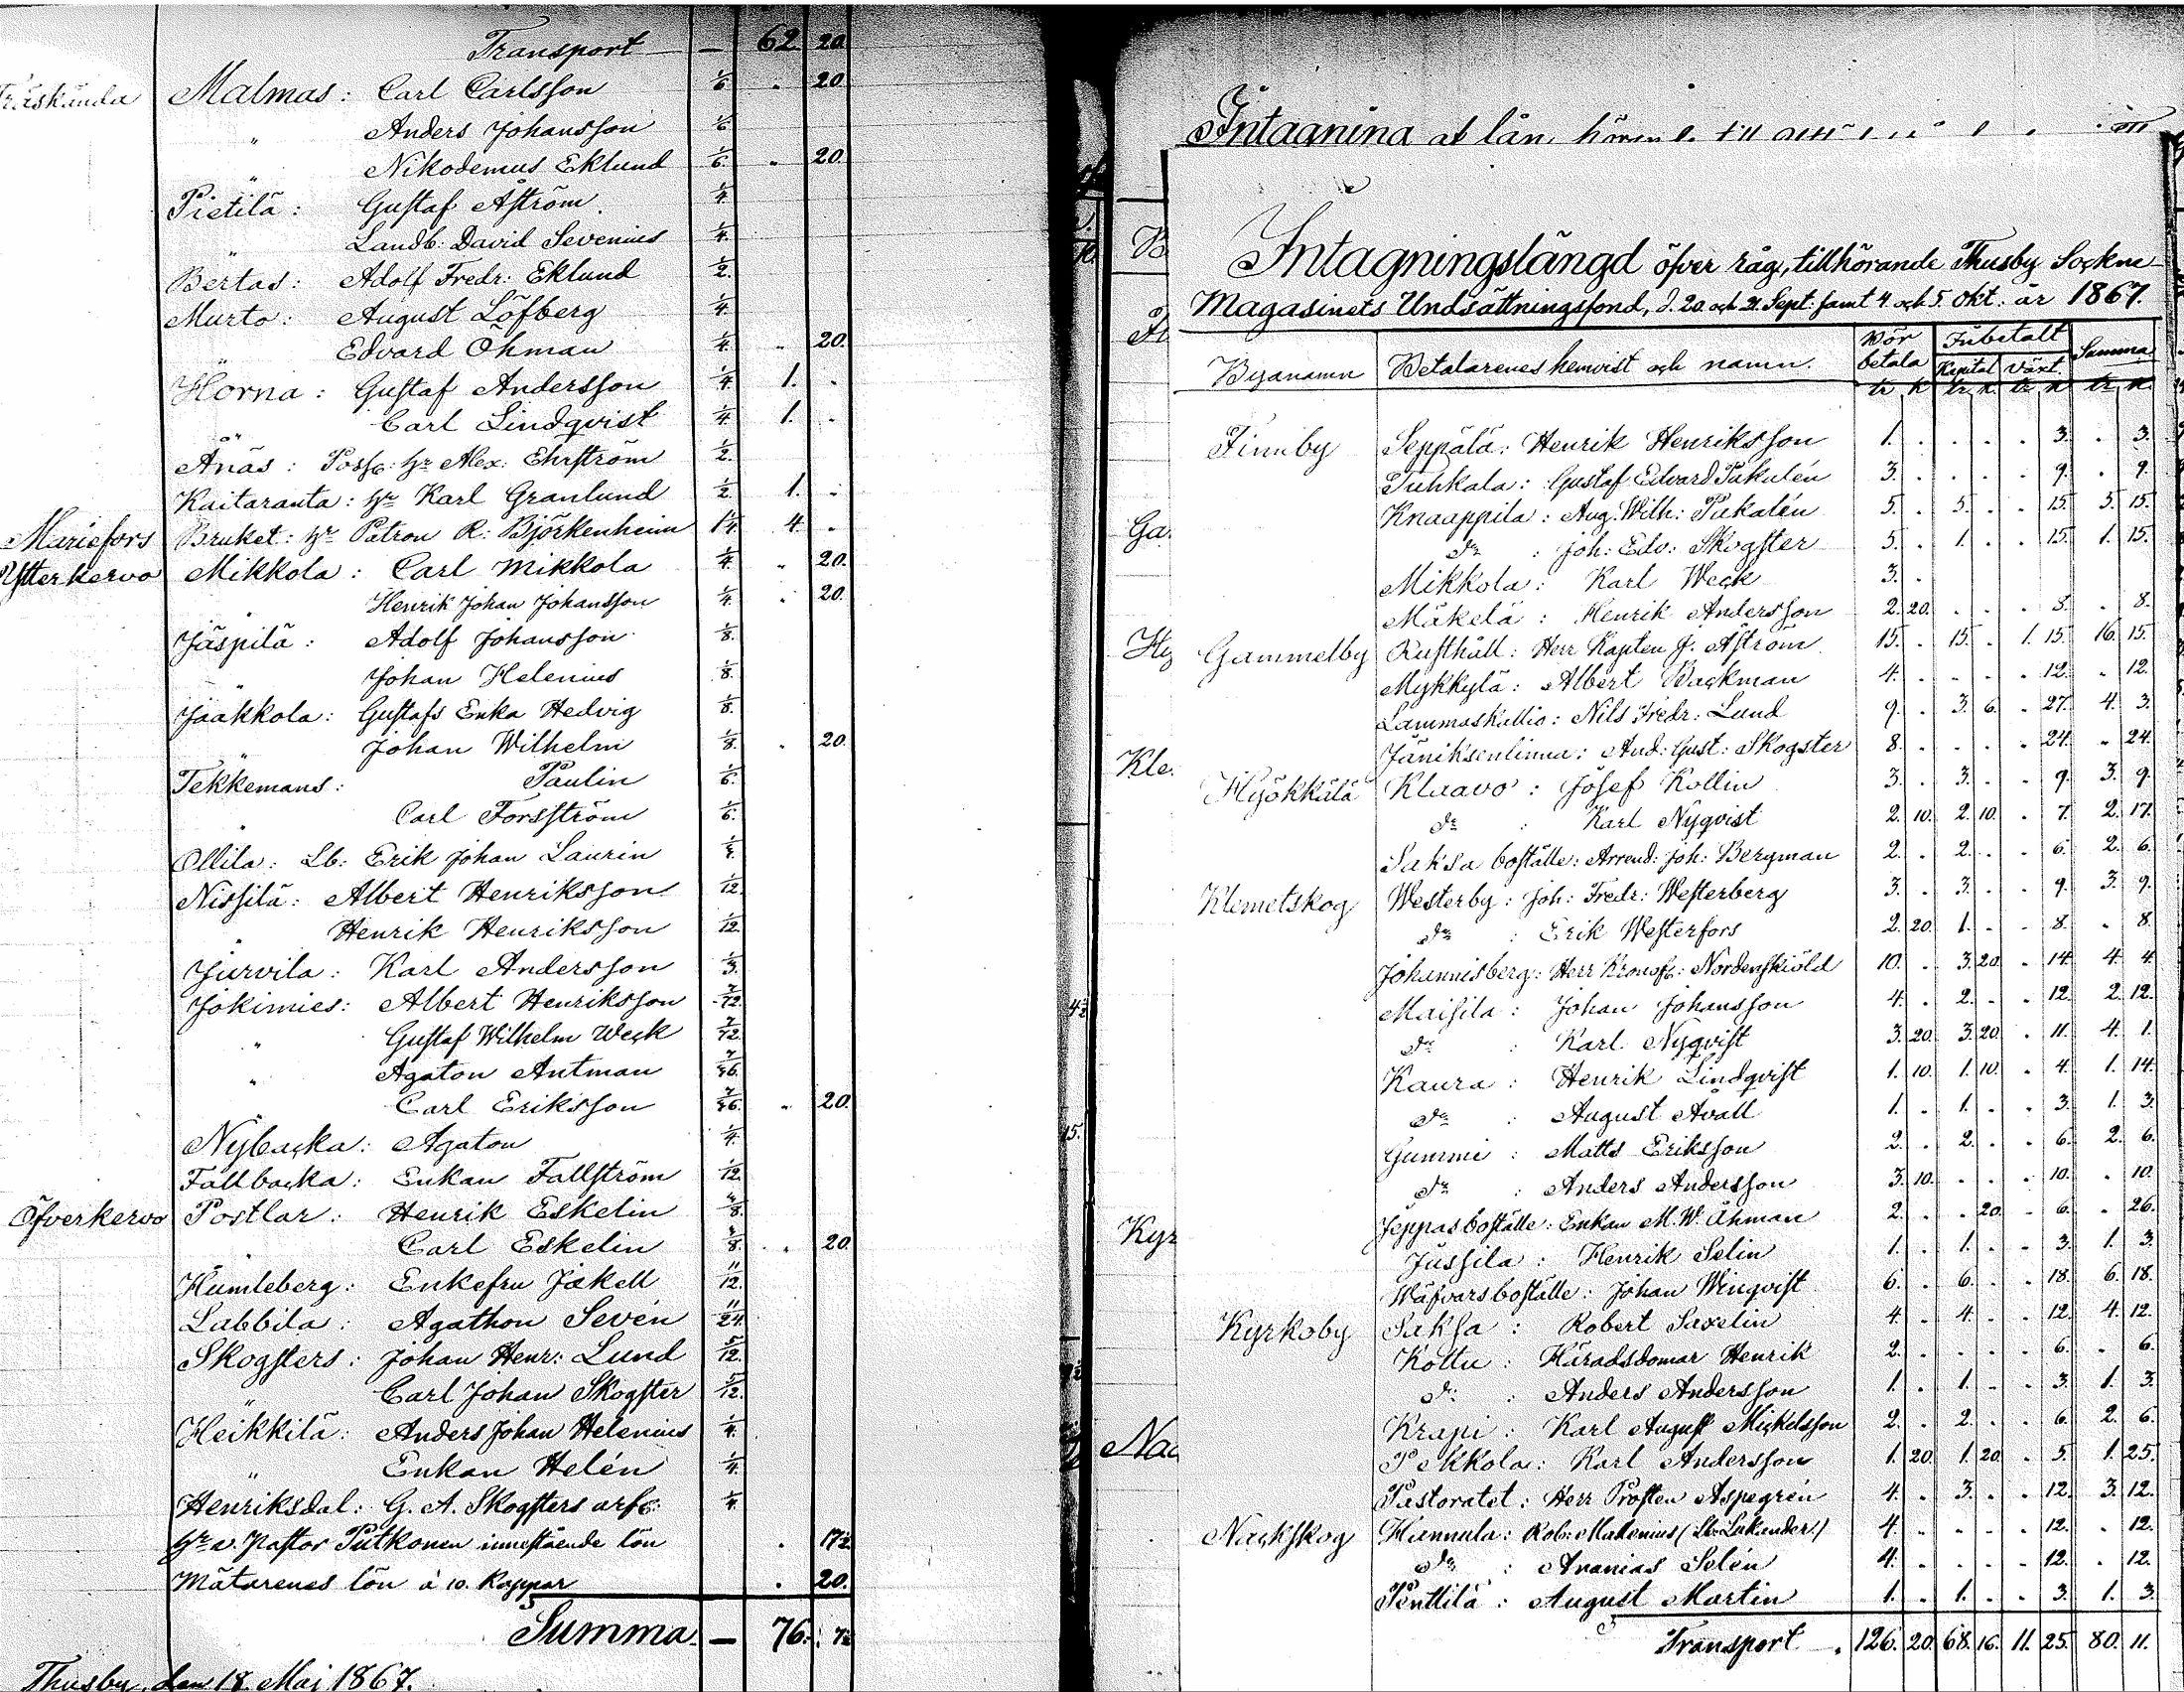 Transport — 62. 20.
Träskända Malmas: Carl Carlsson 1/6 . 20.
" Anders Johansson 1/6
" Nikodemus Eklund 1/6. . 20.
Pietilä: Gustaf Åström 1/4
" Landb: David Sevenius 1/4.
Bertas: Adolf Fredr: Eklund 1/2.
Murto: August Löfberg 1/4.
Edvard Öhman 1/4. . 20.
Horna: Gustaf Andersson 1/4. 1. .
" Carl Lindqvist 1/4. 1. .
Ånäs: Possess: Hr Alex: Ehrström 1/2.
Kaitaranta: Hr Karl Granlund 1/2. 1. .
Mariefors Bruket: Hr Patron R: Björkenheim 1 1/4. 4. .
Ytterkervo Mikkola: Carl Mikkola 1/4. . 20.
" Henrik Johan Johansson 1/4. . 20.
Jäspilä: Adolf Johansson 1/8.
" Johan Helenius 1/8.
Jaakkola: Gustafs Enka Hedvig 1/8.
" Johan Wilhelm 1/8. . 20.
Tekkemans: Paulin 1/6.
" Carl Forsström 1/6.
Ollila: Lb: Erik Johan Laurin
Nissilä: Albert Henriksson 1/12.
" Henrik Henriksson 1/12.
Jurvila: Karl Andersson 1/3.
Jokimies: Albert Henriksson 7/72.
" Gustaf Wilhelm Weck 7/72.
" Agaton Antman
Carl Eriksson . 20.
Nybacka: Agaton 1/4.
Fallbacka: Enkan Fallström 1/12.
Öfverkervo Postlar: Henrik Eskelin
" Carl Eskelin . 20.
Humleberg: Enkefru Jakell 11/12.
Labbila: Agathon Sevén 11/24.
Skogsters: Johan Henr: Lund 5/12.
" Carl Johan Skogster 5/12.
Heikkilä: Anders Johan Helenius 1/4.
" Enkan Helén 1/4.
Henriksdal: G. A. Skogsters arfv: 1/4.
Hr v. Pastor Putkonen innestående lön . 17 1/2
Mätarenes lön à 10. Kappar . 20.
Summa — 76. 7 1/2
Thusby, den 18. Maj 1867.
Intagning af lån
B
Ga.
Hy
Kle.
Kyr
Nac
Intagningslängd öfver råg, tillhörande Thusby Sockne-
Magasinets Undsättningsfond, d. 20 och 21. Sept: samt 4. och 5. Okt: år 1867.
Byanamn Betalarenes hemvist och namn. Bör betala Inbetalt Summa
Kapital växt.
tr k tr. k. tr. k. tr. k.
Finnby Seppälä: Henrik Henriksson 1. . . . . 3. . 3.
Tuhkala: Gustaf Edvard Pakalén 3. . . . . 9. . 9.
Knaappila: Aug. Wilh: Pakalén 5. . 5. . . 15. 5. 15.
do : Joh: Edv: Skogster 5. . 1. . . 15. 1. 15.
Mikkola: Karl Weck 3. .
Mäkelä: Henrik Andersson 2. 20. . . . 8. . 8.
Gammelby Rusthåll: Herr Kapten G. Åström 15. . 15. . 1. 15. 16. 15.
Mykkylä: Albert Backman 4. . . . . 12. . 12.
Lammaskallio: Nils Fredr: Lund 9. . 3. 6. . 27. 4. 3.
Jäniksenlinna: And: Gust: Skogster 8. . . . . 24. . 24.
Hyökkälä Klaavo: Josef Kollin 3. . 3. . . 9. 3. 9.
do : Karl Nyqvist 2. 10. 2. 10. . 7. 2. 17.
Saksa boställe: Arrend: Joh: Bergman 2. . 2. . . 6. 2. 6.
Klemetskog Westerby: Joh: Fredr: Westerberg 3. . 3. . . 9. 3. 9.
do : Erik Westerfors 2. 20. 1. . . 8. . 8.
Johannisberg: Herr Kronof: Nordenskiöld 10. . 3. 20. . 14. 4. 4.
Maisila: Johan Johansson 4. . 2. . . 12. 2. 12.
do : Karl Nyqvist 3. 20. 3. 20. . 11. 4. 1.
Kaura: Henrik Lindqvist 1. 10. 1. 10. . 4. 1. 14.
do : August Avall 1. . 1. . . 3. 1. 3.
Gummi: Matts Eriksson 2. . 2. . . 6. 2. 6.
do : Anders Andersson 3. 10. . . . 10. . 10.
Jeppas boställe: Enkan M. W. Åhman 2. . . 20. . 6. . 26.
Jussila: Henrik Selin 1. . 1. . . 3. 1. 3.
Wäfvars boställe: Johan Winqvist 6. . 6. . . 18. 6. 18.
Kyrkoby Saksa: Robert Saxelin 4. . 4. . . 12. 4. 12.
Kottu: Häradsdomar Henrik 2. . . . . 6. . 6.
do : Anders Andersson 1. . 1. . . 3. 1. 3.
Krapi: Karl August Mickelsson 2. . 2. . . 6. 2. 6.
Pekkola: Karl Andersson 1. 20. 1. 20. . 5. 1. 25.
Pastoratet: Herr Prosten Aspegrén 4. . 3. . . 12. 3. 12.
Nackskog Hannula: Rob: Malenius (Lb: Lukander) 4. . . . . 12. . 12.
do : Ananias Selén 4. . . . . 12. . 12.
Penttilä: August Martin 1. . 1. . . 3. 1. 3.
Transport. 126. 20. 68. 16. 11. 25. 80. 11.